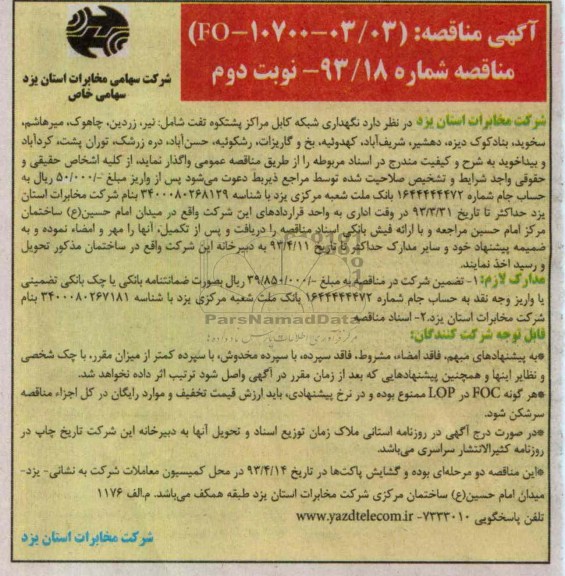 آگهی مناقصه: (FO-۱۰۷۰۰-۰۳/۰۳)
مناقصه شماره ۹۳/۱۸- نوبت دوم
شرکت سهامی مخابرات استان یزد
سهامی خاص
شرکت مخابرات استان یزد در نظر دارد نگهداری شبکه کابل مراکز پشتکوه تفت شامل: نیر، زردین، چاهوک، میرهاشم،
سخوید، بنادکوک دیزه، دهشیر، شریف‌آباد، کهدوئیه، بخ و گاریزات، رشکوئیه، حسن‌آباد، دره زرشک، توران پشت، کردآباد
و بیداخوید به شرح و کیفیت مندرج در اسناد مربوطه را از طریق مناقصه عمومی واگذار نماید، از کلیه اشخاص حقیقی و
حقوقی واجد شرایط و تشخیص صلاحیت شده توسط مراجع ذیربط دعوت می‌شود پس از واریز مبلغ -/۵۰/۰۰۰ ریال به
حساب جام شماره ۱۶۴۴۴۴۴۴۷۲ بانک ملت شعبه مرکزی یزد با شناسه ۳۴۰۰۰۸۰۲۶۸۱۲۹ بنام شرکت مخابرات استان
یزد حداکثر تا تاریخ ۹۳/۳/۳۱ در وقت اداری به واحد قراردادهای این شرکت واقع در میدان امام حسین(ع) ساختمان
مرکز امام حسین مراجعه و با ارائه فیش بانکی اسناد مناقصه را دریافت و پس از تکمیل، آنها را مهر و امضاء نموده و به
ضمیمه پیشنهاد خود و سایر مدارک حداکثر تا تاریخ ۹۳/۴/۱۱ به دبیرخانه این شرکت واقع در ساختمان مذکور تحویل
و رسید اخذ نمایند.
مدارک لازم: ۱- تضمین شرکت در مناقصه به مبلغ -/۳۹/۸۵۰/۰۰۰ ریال بصورت ضمانتنامه بانکی یا چک بانکی تضمینی
یا واریز وجه نقد به حساب جام شماره ۱۶۴۴۴۴۴۴۷۲ بانک ملت شعبه مرکزی یزد با شناسه ۳۴۰۰۰۸۰۲۶۷۱۸۱ بنام
شرکت مخابرات استان یزد.۲- اسناد مناقصه
ParsNamadData
قابل توجه شرکت کنندگان:
*به پیشنهادهای مبهم، فاقد امضاء، مشروط، فاقد سپرده، با سپرده مخدوش، با سپرده کمتر از میزان مقرر، با چک شخصی
و نظایر اینها و همچنین پیشنهادهایی که بعد از زمان مقرر در آگهی واصل شود ترتیب اثر داده نخواهد شد.
*هر گونه FOC در LOP ممنوع بوده و در نرخ پیشنهادی، باید ارزش قیمت تخفیف و موارد رایگان در کل اجزاء مناقصه
سرشکن شود.
*در صورت درج آگهی در روزنامه استانی ملاک زمان توزیع اسناد و تحویل آنها به دبیرخانه این شرکت تاریخ چاپ در
روزنامه کثیرالانتشار سراسری می‌باشد.
*این مناقصه دو مرحله‌ای بوده و گشایش پاکت‌ها در تاریخ ۹۳/۴/۱۴ در محل کمیسیون معاملات شرکت به نشانی- یزد-
میدان امام حسین(ع) ساختمان مرکزی شرکت مخابرات استان یزد طبقه همکف می‌باشد. م.الف ۱۱۷۶
تلفن پاسخگویی ۷۲۳۳۰۱۰- www.yazdtelecom.ir
شرکت مخابرات استان یزد